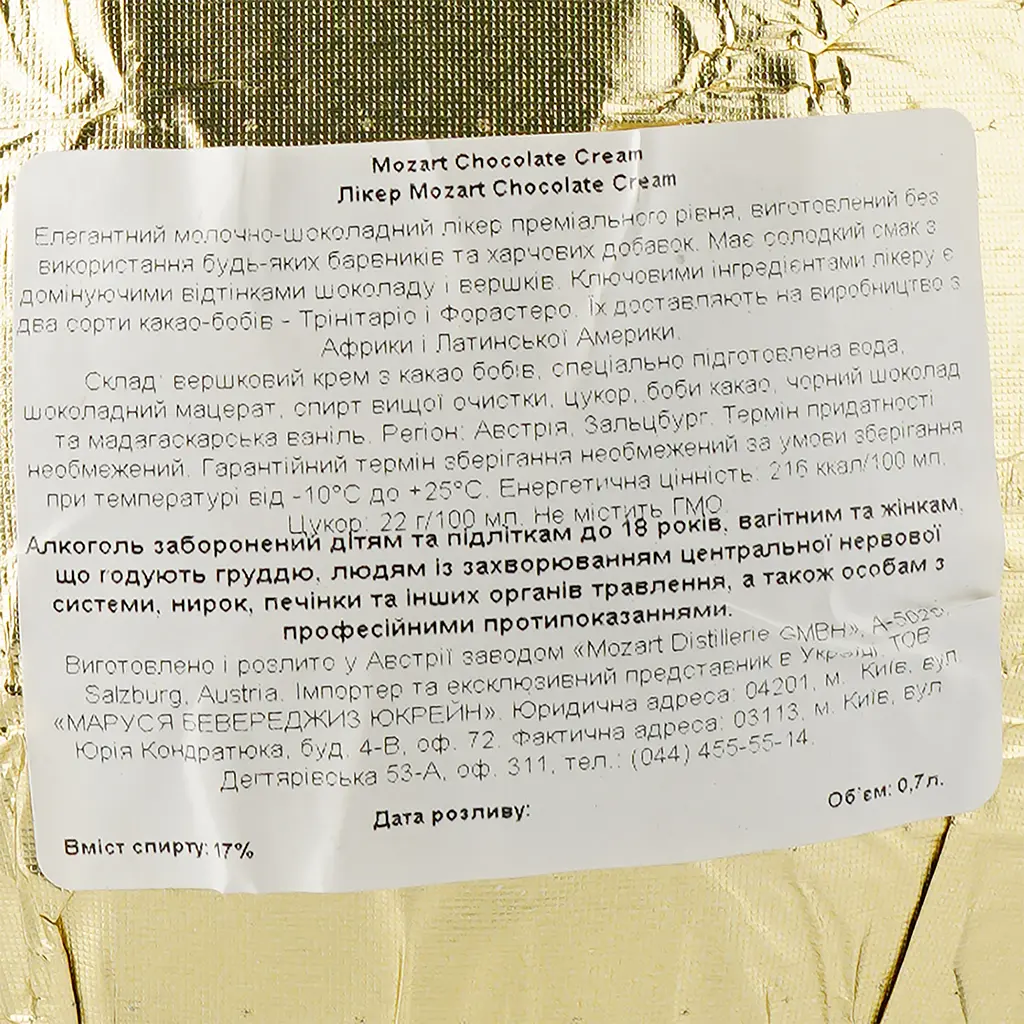 Mozart Chocolate Cream
Лікер Mozart Chocolate Cream
Елегантний молочно-шоколадний лікер преміального рівня, виготовлений без
використання будь-яких барвників та харчових добавок. Має солодкий смак з
домінуючими відтінками шоколаду і вершків. Ключовими інгредієнтами лікеру є
два сорти какао-бобів - Трінітаріо і Форастеро. Їх доставляють на виробництво з
Африки і Латинської Америки.
Склад: вершковий крем з какао бобів, спеціально підготовлена вода,
шоколадний мацерат, спирт вищої очистки, цукор, боби какао, чорний шоколад
та мадагаскарська ваніль. Регіон: Австрія, Зальцбург. Термін придатності
необмежений. Гарантійний термін зберігання необмежений за умови зберігання
при температурі від -10°C до +25°C. Енергетична цінність: 216 ккал/100 мл.
Цукор: 22 г/100 мл. Не містить ГМО
Алкоголь заборонений дітям та підліткам до 18 років, вагітним та жінкам,
що годують груддю, людям із захворюванням центральної нервової
системи, нирок, печінки та інших органів травлення, а також особам з
професійними протипоказаннями.
Виготовлено і розлито у Австрії заводом «Mozart Distillerie GMBH»,
Salzburg, Austria. Імпортер та ексклюзивний представник в Україні: ТОВ
«МАРУСЯ БЕВЕРЕДЖИЗ ЮКРЕЙН». Юридична адреса: 04201, м. Київ, вул.
Юрія Кондратюка, буд. 4-В, оф. 72. Фактична адреса: 03113, м. Київ, вул
Дегтярівська 53-А, оф. 311, тел.: (044) 455-55-14.
Дата розливу:
Об'єм: 0,7л.
Вміст спирту: 17%